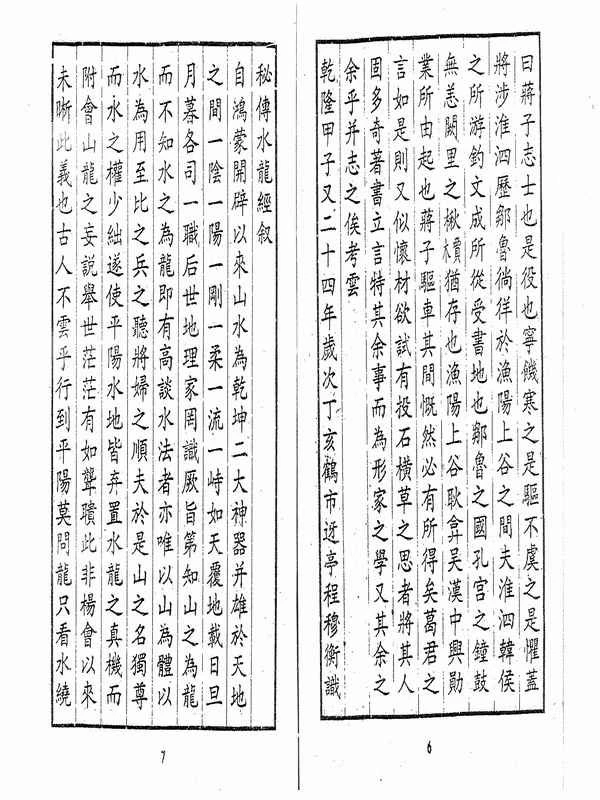 曰蔣子志士也是役也寧饑寒之是驅不虞之是懼蓋
將涉淮泗歷鄒魯徜徉於漁陽上谷之間夫淮泗韓侯
之所游釣文成所從受書地也鄒魯之國孔宮之鐘鼓
無恙闕里之楸檟猶存也漁陽上谷耿弇吴漢中興勛
業所由起也蔣子驅車其間慨然必有所得矣葛君之
言如是則又似懷材欲試有投石橫草之思者將其人
固多奇著書立言特其余事而為形家之學又其余之
余乎并志之俟考雲
乾隆甲子又二十四年歲次丁亥鶴市迓亭程穆衡識
6
秘傳水龍經叙
自鴻蒙開辟以來山水為乾坤二大神器并雄於天地
之間一陰一陽一剛一柔一流一峙如天覆地載日旦
月暮各司一職后世地理家罔識厥旨第知山之為龍
而不知水之為龍即有高談水法者亦唯以山為體以
水為用至比之兵之聽將婦之順夫於是山之名獨尊
而水之權少絀遂使平陽水地皆弃置水龍之真機而
附會山龍之妄説舉世茫茫有如聾聵此非楊會以來
未晰此義也古人不雲乎行到平陽莫問龍只看水繞
7